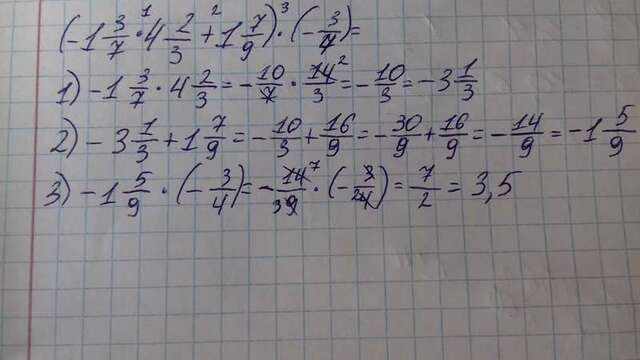 (-1 3/7 · 4 2/3 + 1 7/9) · (-3/4) =
1) -1 3/7 · 4 2/3 = -10/7 · 14/3 = -10/3 = -3 1/3
2) -3 1/3 + 1 7/9 = -10/3 + 16/9 = -30/9 + 16/9 = -14/9 = -1 5/9
3) -1 5/9 · (-3/4) = -14/9 · (-3/4) = 7/2 = 3,5